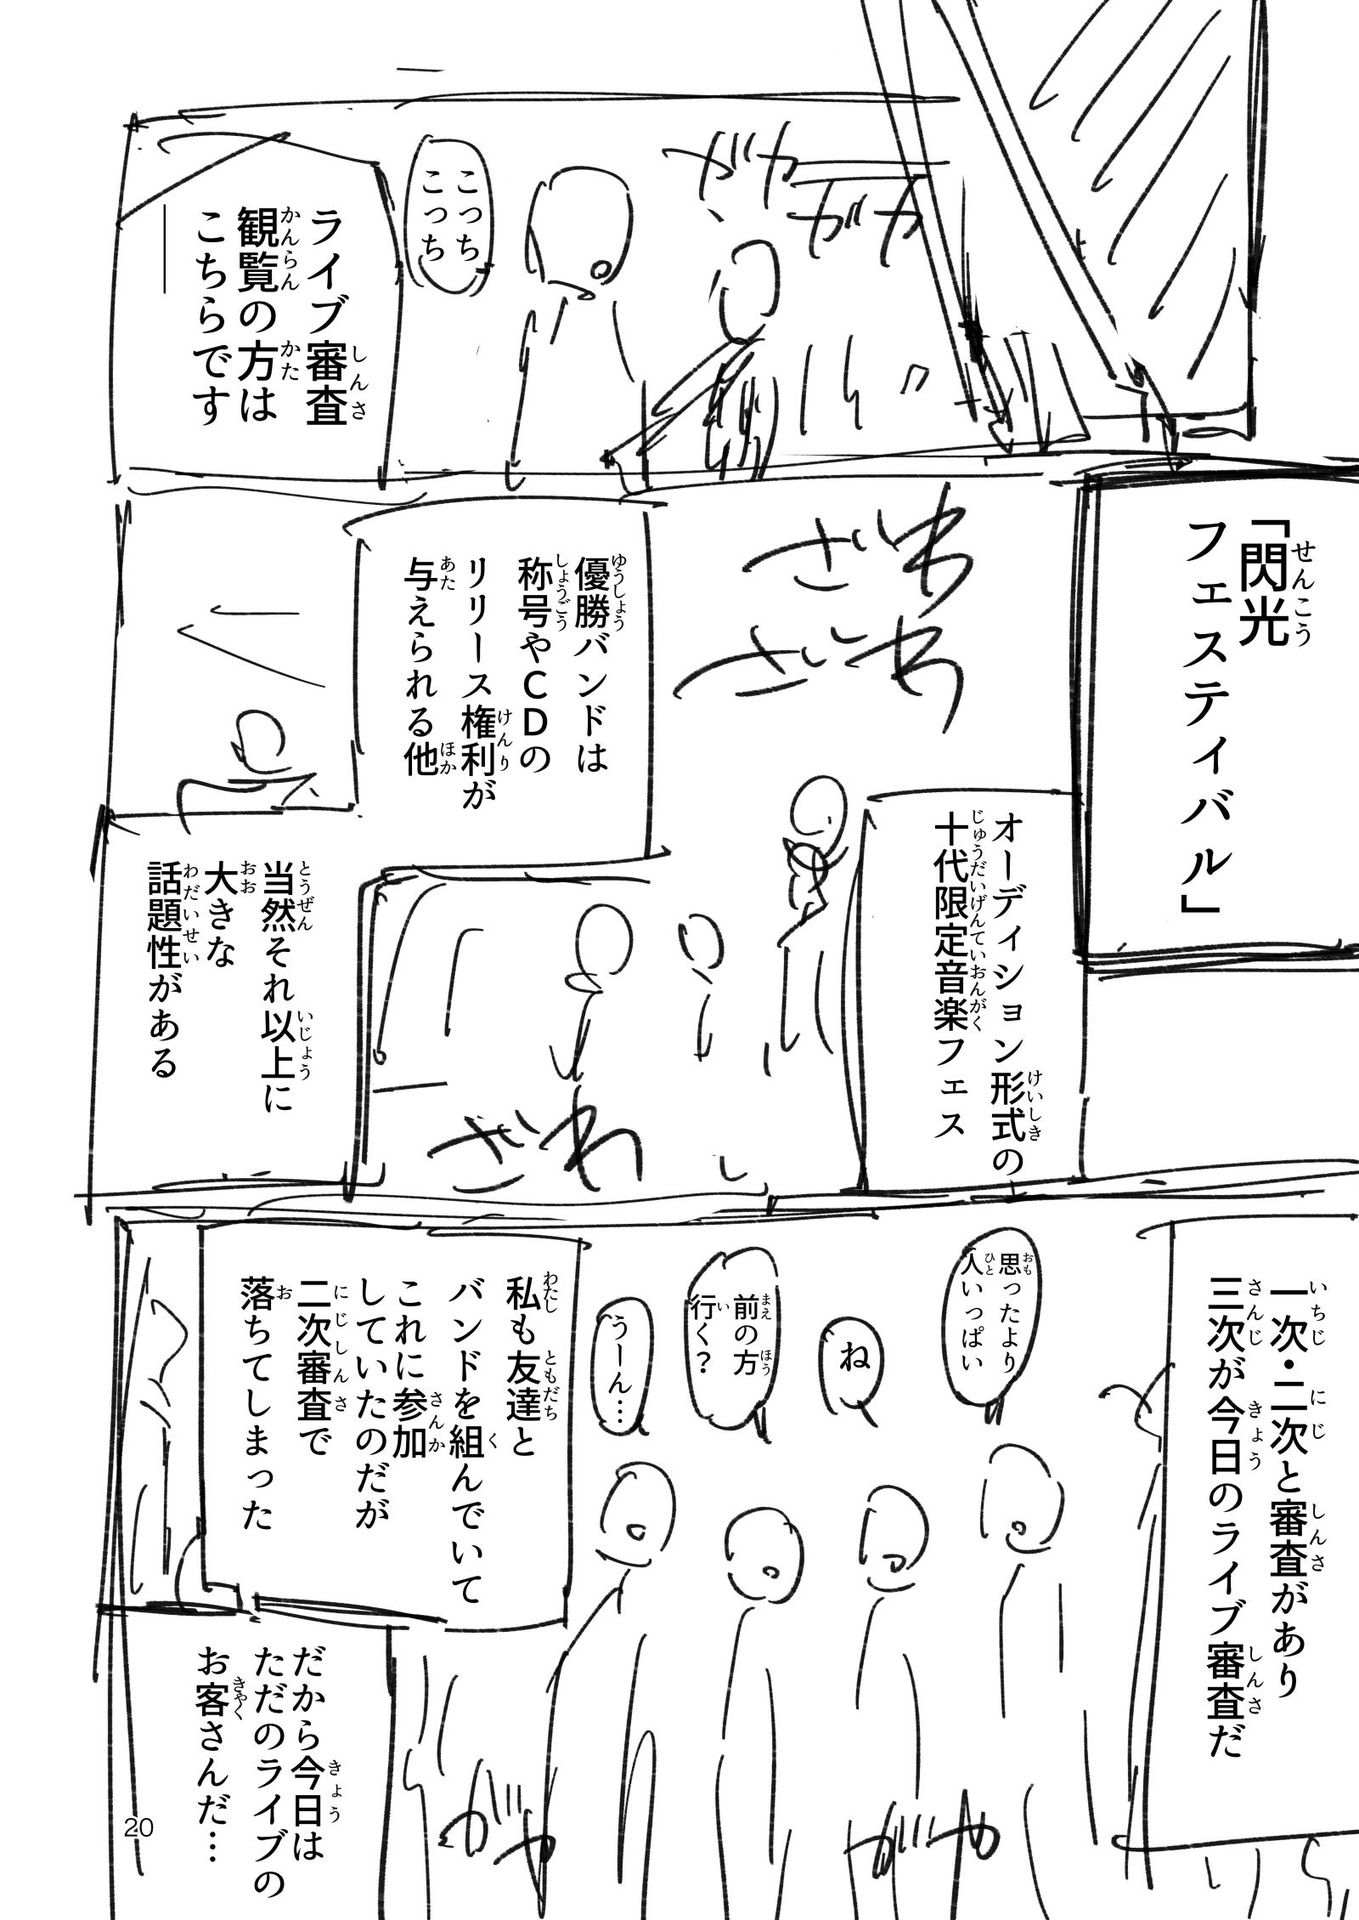 ガヤ
ガヤ
こっち
こっち
ライブ審査
観覧の方は
こちらです
「閃光
フェスティバル」
オーディション形式の
十代限定音楽フェス
ざわ
ざわ
ざわ
優勝バンドは
称号やCDの
リリース権利が
与えられる他
当然それ以上に
大きな
話題性がある
一次・二次と審査があり
三次が今日のライブ審査だ
思ったより
人いっぱい
ね
前の方
行く?
うーん…
私も友達と
バンドを組んでいて
これに参加
していたのだが
二次審査で
落ちてしまった
がや
がや
だから今日は
ただのライブの
お客さんだ…
20